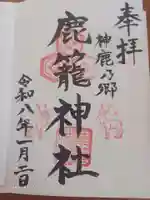 奉拝
神鹿乃郷
鹿籠神社
令和八年一月二日